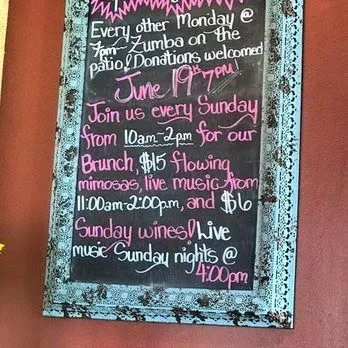 Every other Monday @
7pm~ Zumba on the
patio! Donations welcomed
June 19th 7pm
Join us every Sunday
from 10am-2pm for our
Brunch, $15 flowing
mimosas, live music from
11:00am-2:00pm, and $6
Sunday wines! Live
music Sunday nights @
4:00pm